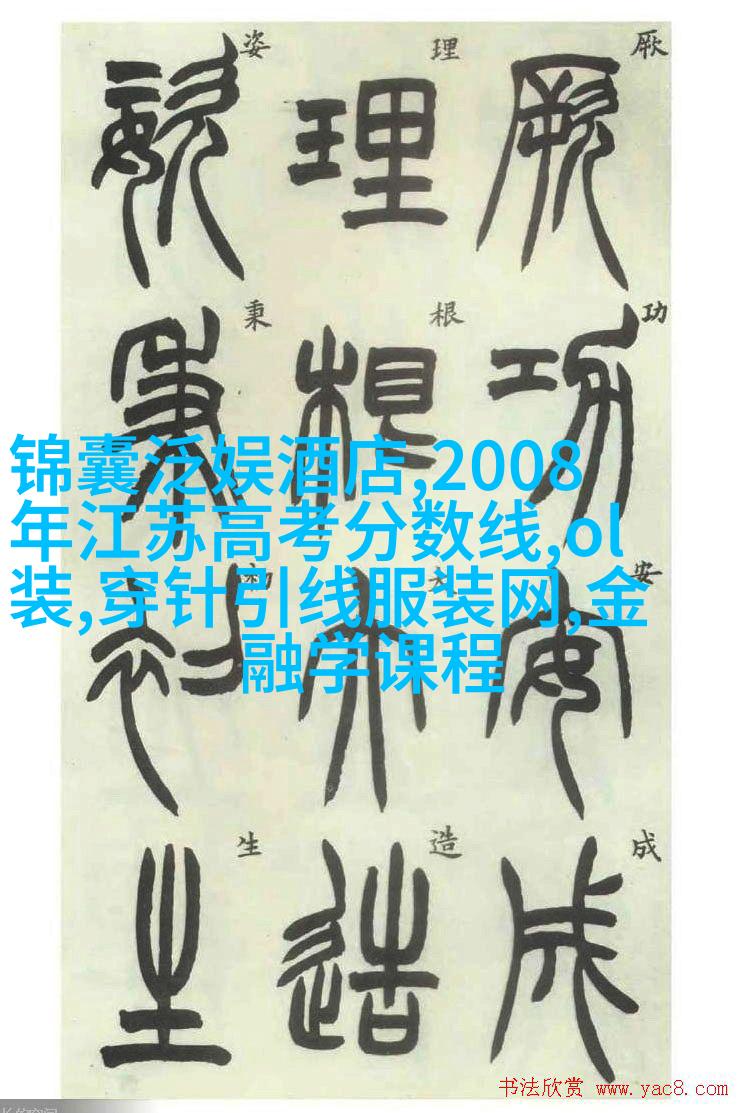 厥功安成
理根大造
姿秉初生
锦囊泛娱酒店,2008
年江苏高考分数线,ol
装,穿针引线服装网,金
融学课程
书法欣赏 www.yac8.com